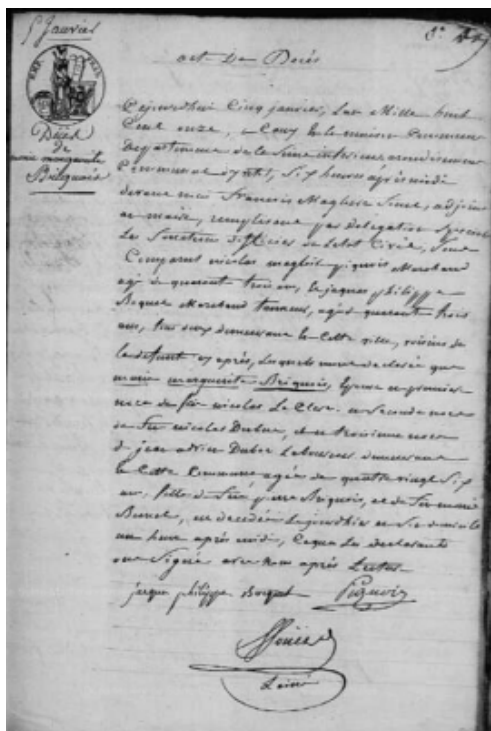 5 Janvier
acte De Décès
Décès
de
marie marguerite
Briquois
Cejourdhui Cinq janvier, Lan Mille huit
Cent onze, a maison Commune
Departement de la Seine inferieure arrondissement
Communal d'yvetot, Six heures après midi
devant nous Francois Magloire adjoint
au maire, remplissant par délégation
Les fonctions d'officier de Letat Civil, Sont
Comparus nicolas magloire pignois Marchand
agé de quarante trois ans, et jaques philippe
Boquet Marchand Tanneur, agé de quarante trois
ans, tous deux demeurant en Cette ville, voisins de
la défunte cy après, Lesquels nous ont declaré que
marie marguerite Briquois, Epouse en premiere
noce de feu nicolas Le Clerc. en Seconde noce
de feu nicolas Dubuc, et en troisieme noce
de jean adrien demeurant
en Cette Commune agée de quatre vingt Six
ans, fille de feu pierre Briquois, et de feue marie
Bunel, est decedée Cejourdhui en Son domicile
une heure après midi, Ce que Les declarants
ont Signé avec nous après Lecture
jaques philippe Boquet Pignois